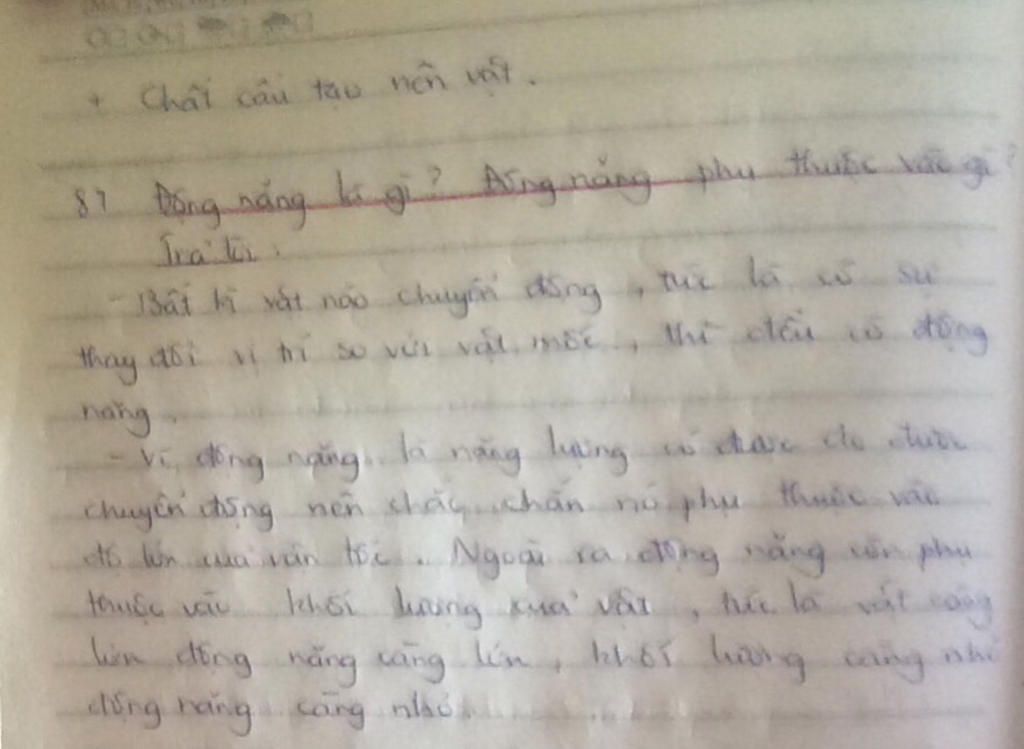 + Chất cấu tạo nên vật.
8? Động năng là gì? Động năng phụ thuộc vào gì?
Trả lời:
- Bất kì vật nào chuyển động, tức là có sự
thay đổi vị trí so với vật mốc, thì đều có động
năng.
- Vì động năng là năng lượng có được do được
chuyển động nên chắc chắn nó phụ thuộc vào
độ lớn của vận tốc. Ngoài ra động năng còn phụ
thuộc vào khối lượng của vật, tức là vật càng
lớn động năng càng lớn, khối lượng càng nhỏ
động năng càng nhỏ.